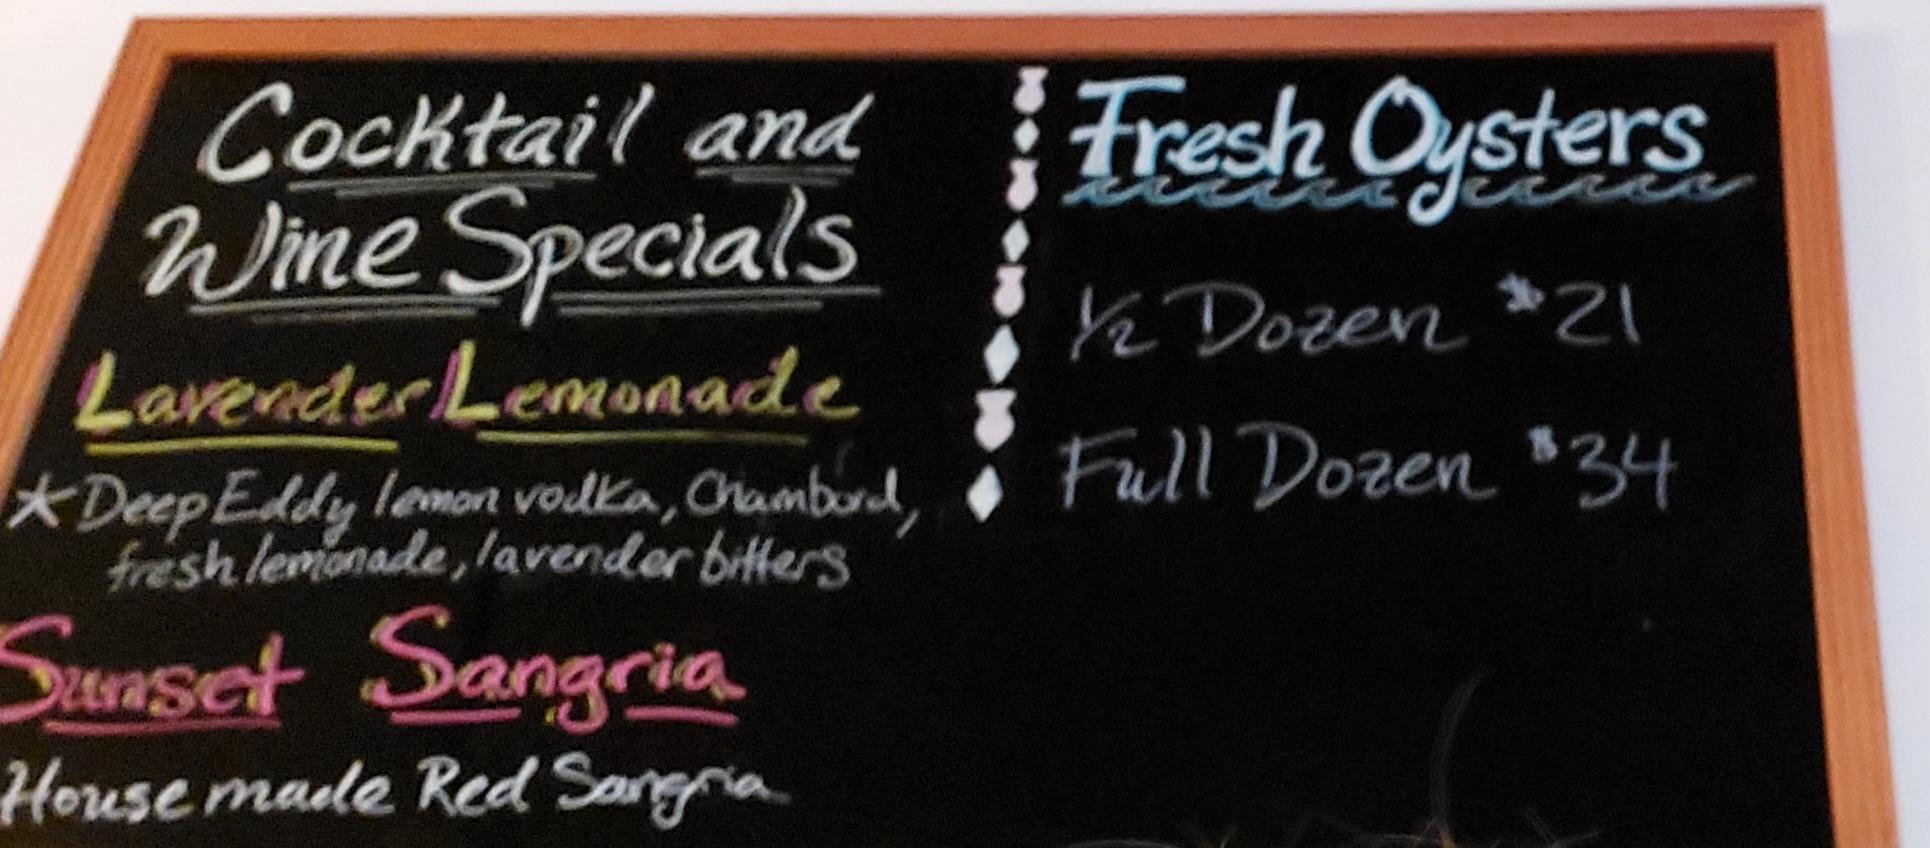 Cocktail and
Wine Specials
Lavender Lemonade
Deep Eddy lemon vodka, Chambord,
fresh lemonade, lavender bitters
Sunset Sangria
House made Red Sangria
Fresh Oysters
1/2 Dozen $21
Full Dozen $34